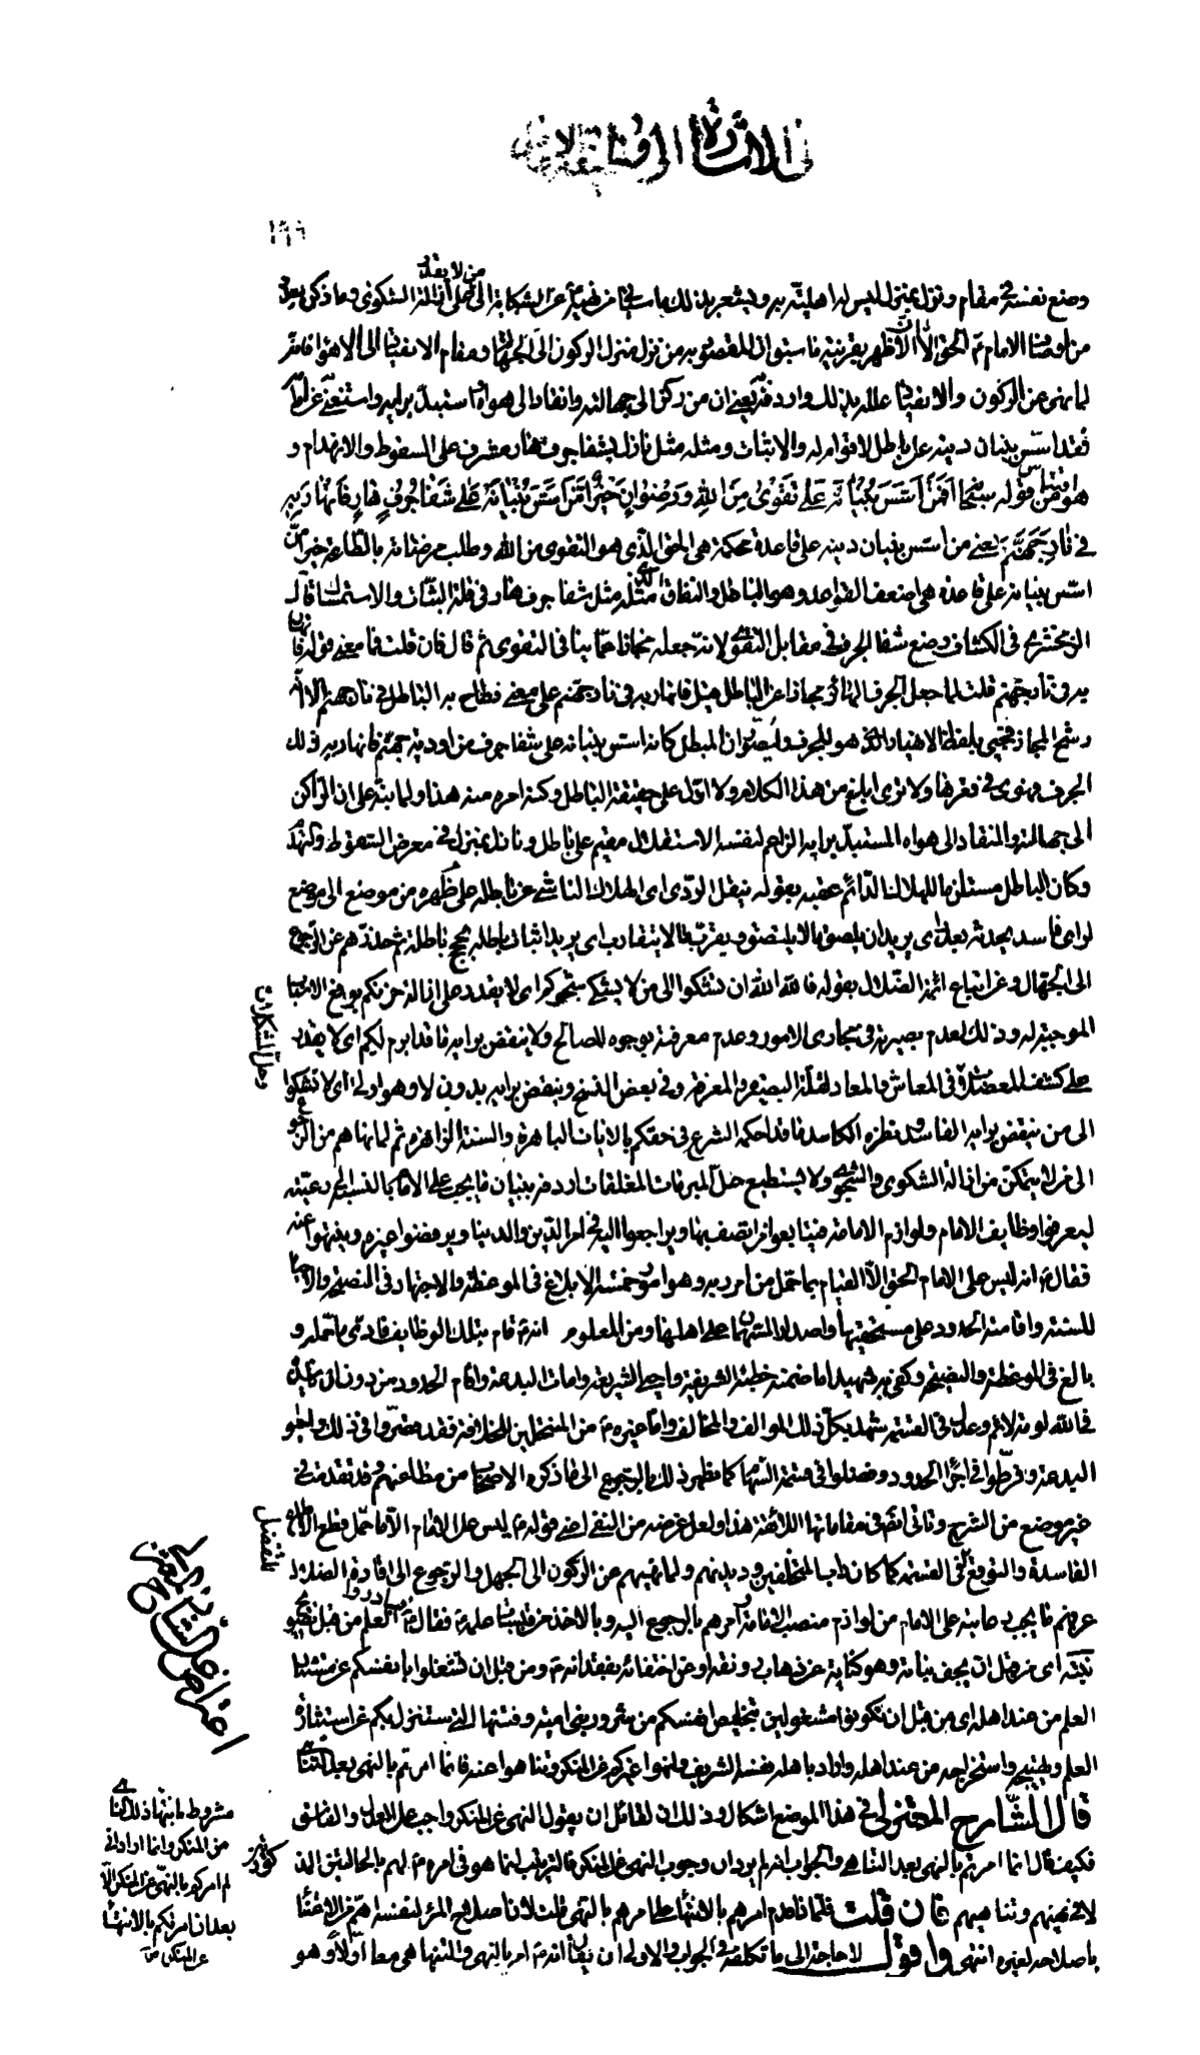 في الاشارة الى
١٩٩
وضع نفسه في مقام ونزل بمنزل ليس له اهليته به ويشعر بذلك ما من لا يقدر على ازالة الشكوى وما ذكر بعد
من اوصنا الامام الحق الا ان الاظهر بقرينة ما سبق ان المقصود به من نزل منزل الركون الى الجهالة ومقام الانقياد الى الاهواء فانه
لما نهى عن الركون والانقياد علله بذلك واردفه يعني ان من ركن الى جهالته وانقاد الى هواه واستبد برايه واستغنى
فقد اسس بنيان دينه على باطل لا قوام له والاثبات ومثله مثل نازل بشفا جرف هار مشرف على السقوط والانهدام و
هو اقتباس من قوله سبحانه افمن اسس بنيانه على تقوى من الله ورضوان خير ام من اسس بنيانه على شفا جرف هار فانهار به
في نار جهنم يعني من اسس بنيان دينه على قاعدة محكمة هي الحق الذي هو التقوى من الله وطلب مرضاته بالطاعة خير امن
اسس بنيانه على قاعدة هي اضعف القواعد وهو الباطل والنفاق الذي مثله مثل شفا جرف هار في قلة الثبات والاستمساك قال
الزمخشري في الكشاف وضع شفا الجرف في مقابل التقوى لانه جعله مجازا عما ينافي التقوى ثم قال فان قلت فما معنى قوله فانهار
به في نار جهنم قلت لما جعل الجرف الهائر مجازا عن الباطل قيل فانهار به في نار جهنم على معنى فطاح به الباطل في نار جهنم الا انه
رشح المجاز فجيئ بلفظ الانهيار الذي هو للجرف وليصور ان المبطل كانه اسس بنيانه على شفا جرف من اودية جهنم فانهار به ذلك
الجرف فهوى في قعرها ولا ترى ابلغ من هذا الكلام ولا ادل على حقيقة الباطل وكنه امره منه هذا ولما نبه على ان الراكن
الى جهالته والمنقاد الى هواه المستبد برايه الزاعم لنفسه الاستقلال مقيم على باطل ونازل بمنزل في معرض السقوط
وكان الباطل مستلزما للهلاك الدائم عقبه بقوله ينقل الردى اي الهلاك الناشي عن باطله على ظهره من موضع الى موضع
لراي فاسد يحدثه بعد راي يريد ان يلصق ما لا يلتصق ويقرب ما لا يتقارب اي يريد اثبات باطله بحجج باطلة ثم حذرهم عن الرجوع
الى الجهال وعن اتباع ائمة الضلال بقوله فالله الله ان تشكوا الى من لا يشكي شجوكم اي لا يقدر على ازالة حزنكم
الموجبة له وذلك لعدم بصيرته في مجارى الامور وعدم معرفته بوجوه المصالح ولا ينقض برايه ما قد ابرم لكم اي لا يقدر
على كشف المعضلات في المعاش والمعاد لقلة البصيرة والمعرفة وفي بعض النسخ وينقض برايه بدون لا وهو اولى اي لا تشكوا
الى من ينقض برايه الفاسد ونظره الكاسد ما قد احكمه الشرع في حقكم بالايات الباهرة والسنة الزاهرة ثم لما نهاهم من الرجوع
الى من لا يتمكن من ازالة الشكوى والشجو ولا يستطيع حل المبرمات المغلقات اردفه ببيان ما يجب على الامام بالنسبة الى رعيته
ليعرفوا وظايف الامام ولوازم الامامة فيتابعوا من اتصف بها ويراجعوا اليه في امر الدين والدنيا ويرفضوا غيره وينتهوا عنه
فقال انه ليس على الامام الحق الا القيام بما حمل من امر ربه وهو امور خمسة الابلاغ في الموعظة والاجتهاد في النصيحة والاحياء
للسنة واقامة الحدود على مستحقيها واصدار السهمان على اهلها ومن المعلوم انه قام بتلك الوظايف فادى ما حمله و
بالغ في الموعظة والنصيحة وكفى به شهيدا ما ضمنه خطبه الشريفة واحيى الشريعة وامات البدعة واقام الحدود من دون ان ياخذه
في الله لومة لائم وعدل في القسمة شهد بكل ذلك الموالف والمخالف واما غيره من المنتحلين للخلافة فقد قصروا في ذلك واحيوا
البدعة وفرطوا في اجراء الحدود وفضلوا في قسمة السهام كما يظهر ذلك بالرجوع الى ما ذكره الاصحاب من مطاعنهم وقد تقدمت في
غير موضع من الشرح وتاتي ايضا في مقاماتها اللائقة هذا ولعل غرضه من النفي اعني قوله ليس على الامام الا ما حمل قطع الاطماع
الفاسدة والتوقع في القسمة كما كان داب المتخلفين وديدنهم ولما نهيهم عن الركون الى الجهل والرجوع الى قادة الضلال
عرفهم ما يجب عليه على الامام من لوازم منصب الامامة امرهم بالرجوع اليه وبالاخذ من علمه فقال فبادروا العلم من قبل تصويح
نبته اي من قبل ان يجف نباته وهو كناية عن ذهاب رونقه او عن اختفائه بفقدانه ومن قبل ان تشغلوا بانفسكم عن مستثار
العلم من عند اهله اي من قبل ان تكونوا مشغولين بتخليص انفسكم من شرور بني امية وفتنها التي ستنزل بكم عن استثارة
العلم واستخراجه من عند اهله واراد باهله نفسه الشريف وانهوا غيركم عن المنكر وتناهوا عنه فانما امرتم بالنهي بعد التناهي
قال الشارح المعتزلي في هذا الموضع اشكال وذلك ان لقائل ان يقول النهي عن المنكر واجب على العدل والفاسق
فكيف قال انما امرتم بالنهي بعد التناهي والجواب انه لم يرد ان وجوب النهي عن المنكر فالترتيب انما هو في امره لهم بالحالتين
لا في نهيهم وتناهيهم فان قلت فلماذا قدم امرهم بالانتهاء على امرهم بالنهي قلت لان اصلاح المرء لنفسه اهم من الاعتناء
باصلاحه لغيره انتهى واقول لا حاجة الى ما تكلفه في الجواب والاولى ان يقال انه امر بالنهي والتناهي معا اولا وهو
وحل المشكلات
بالتفضيل
مشروط بانتهاء ذلك
من المنكر وانما اراد اني
لم امركم بالنهي عن المنكر الا
بعد ان امرتكم بالانتهاء
عن المنكر